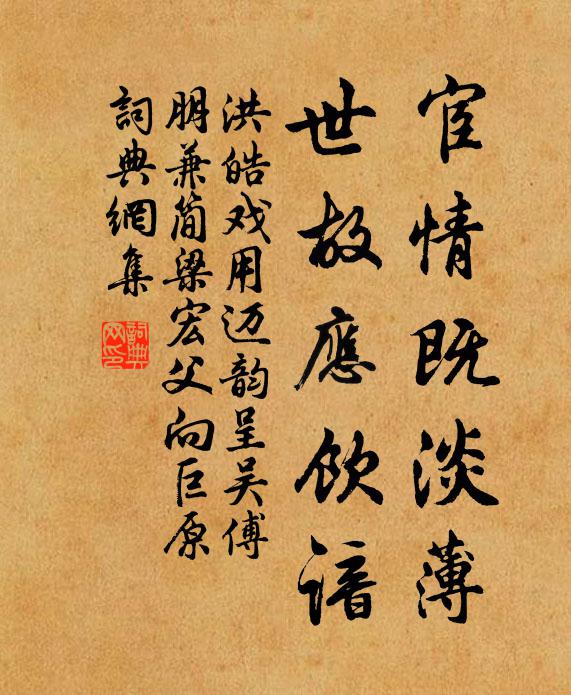 宦情既淡薄
世故應飲谙
洪皓戏用迈韵呈吴傅
朋兼简梁宏父向巨原
詞典網集
詞典
网印